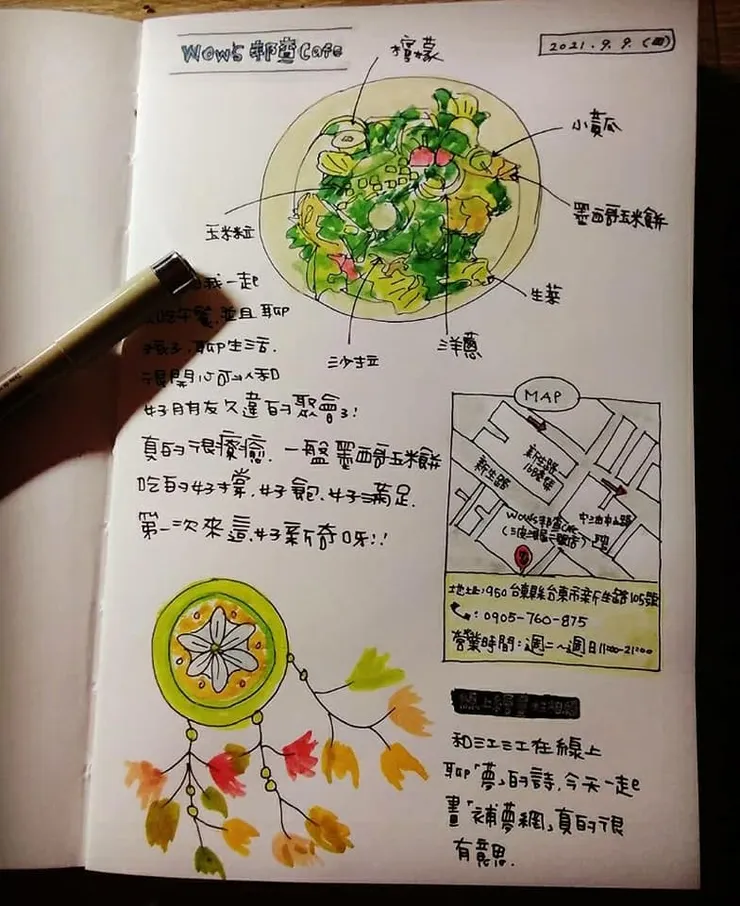 Wow's 邦查Cafe
2021.9.9.(四)
檸檬
小黃瓜
墨西哥玉米餅
玉米粒
生菜
洋蔥
沙拉
我一起
吃午餐,並且聊
聊生活.
很開心可以和
好朋友久違的聚會!
真的很療癒. 一盤墨西哥玉米餅
吃的好撐,好飽,好滿足.
第一次來這,好新奇呀!!
MAP
新生路
105巷號
新生路
中山路
Wow's邦查Cafe
地址:950台東縣台東市新生路105號
:0905-760-875
營業時間:週二~週日11:00-21:00
線上
和江江在線上
聊「夢」的詩,今天一起
畫「補夢網」,真的很
有意思.